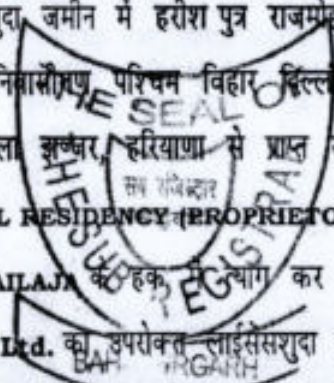 दा जमीन में हरीश पुत्र राजमो
निवासीगण पश्चिम विहार दिल्ल
ला झज्जर, हरियाणा से प्राप्त
L RESIDENCY (PROPRIETO
AILAJA के हक में त्याग कर
Ltd. का उपरोक्त लाईसेंसशुदा
THE SEAL OF
THE SUB REGISTRAR
सब रजिस्ट्रार